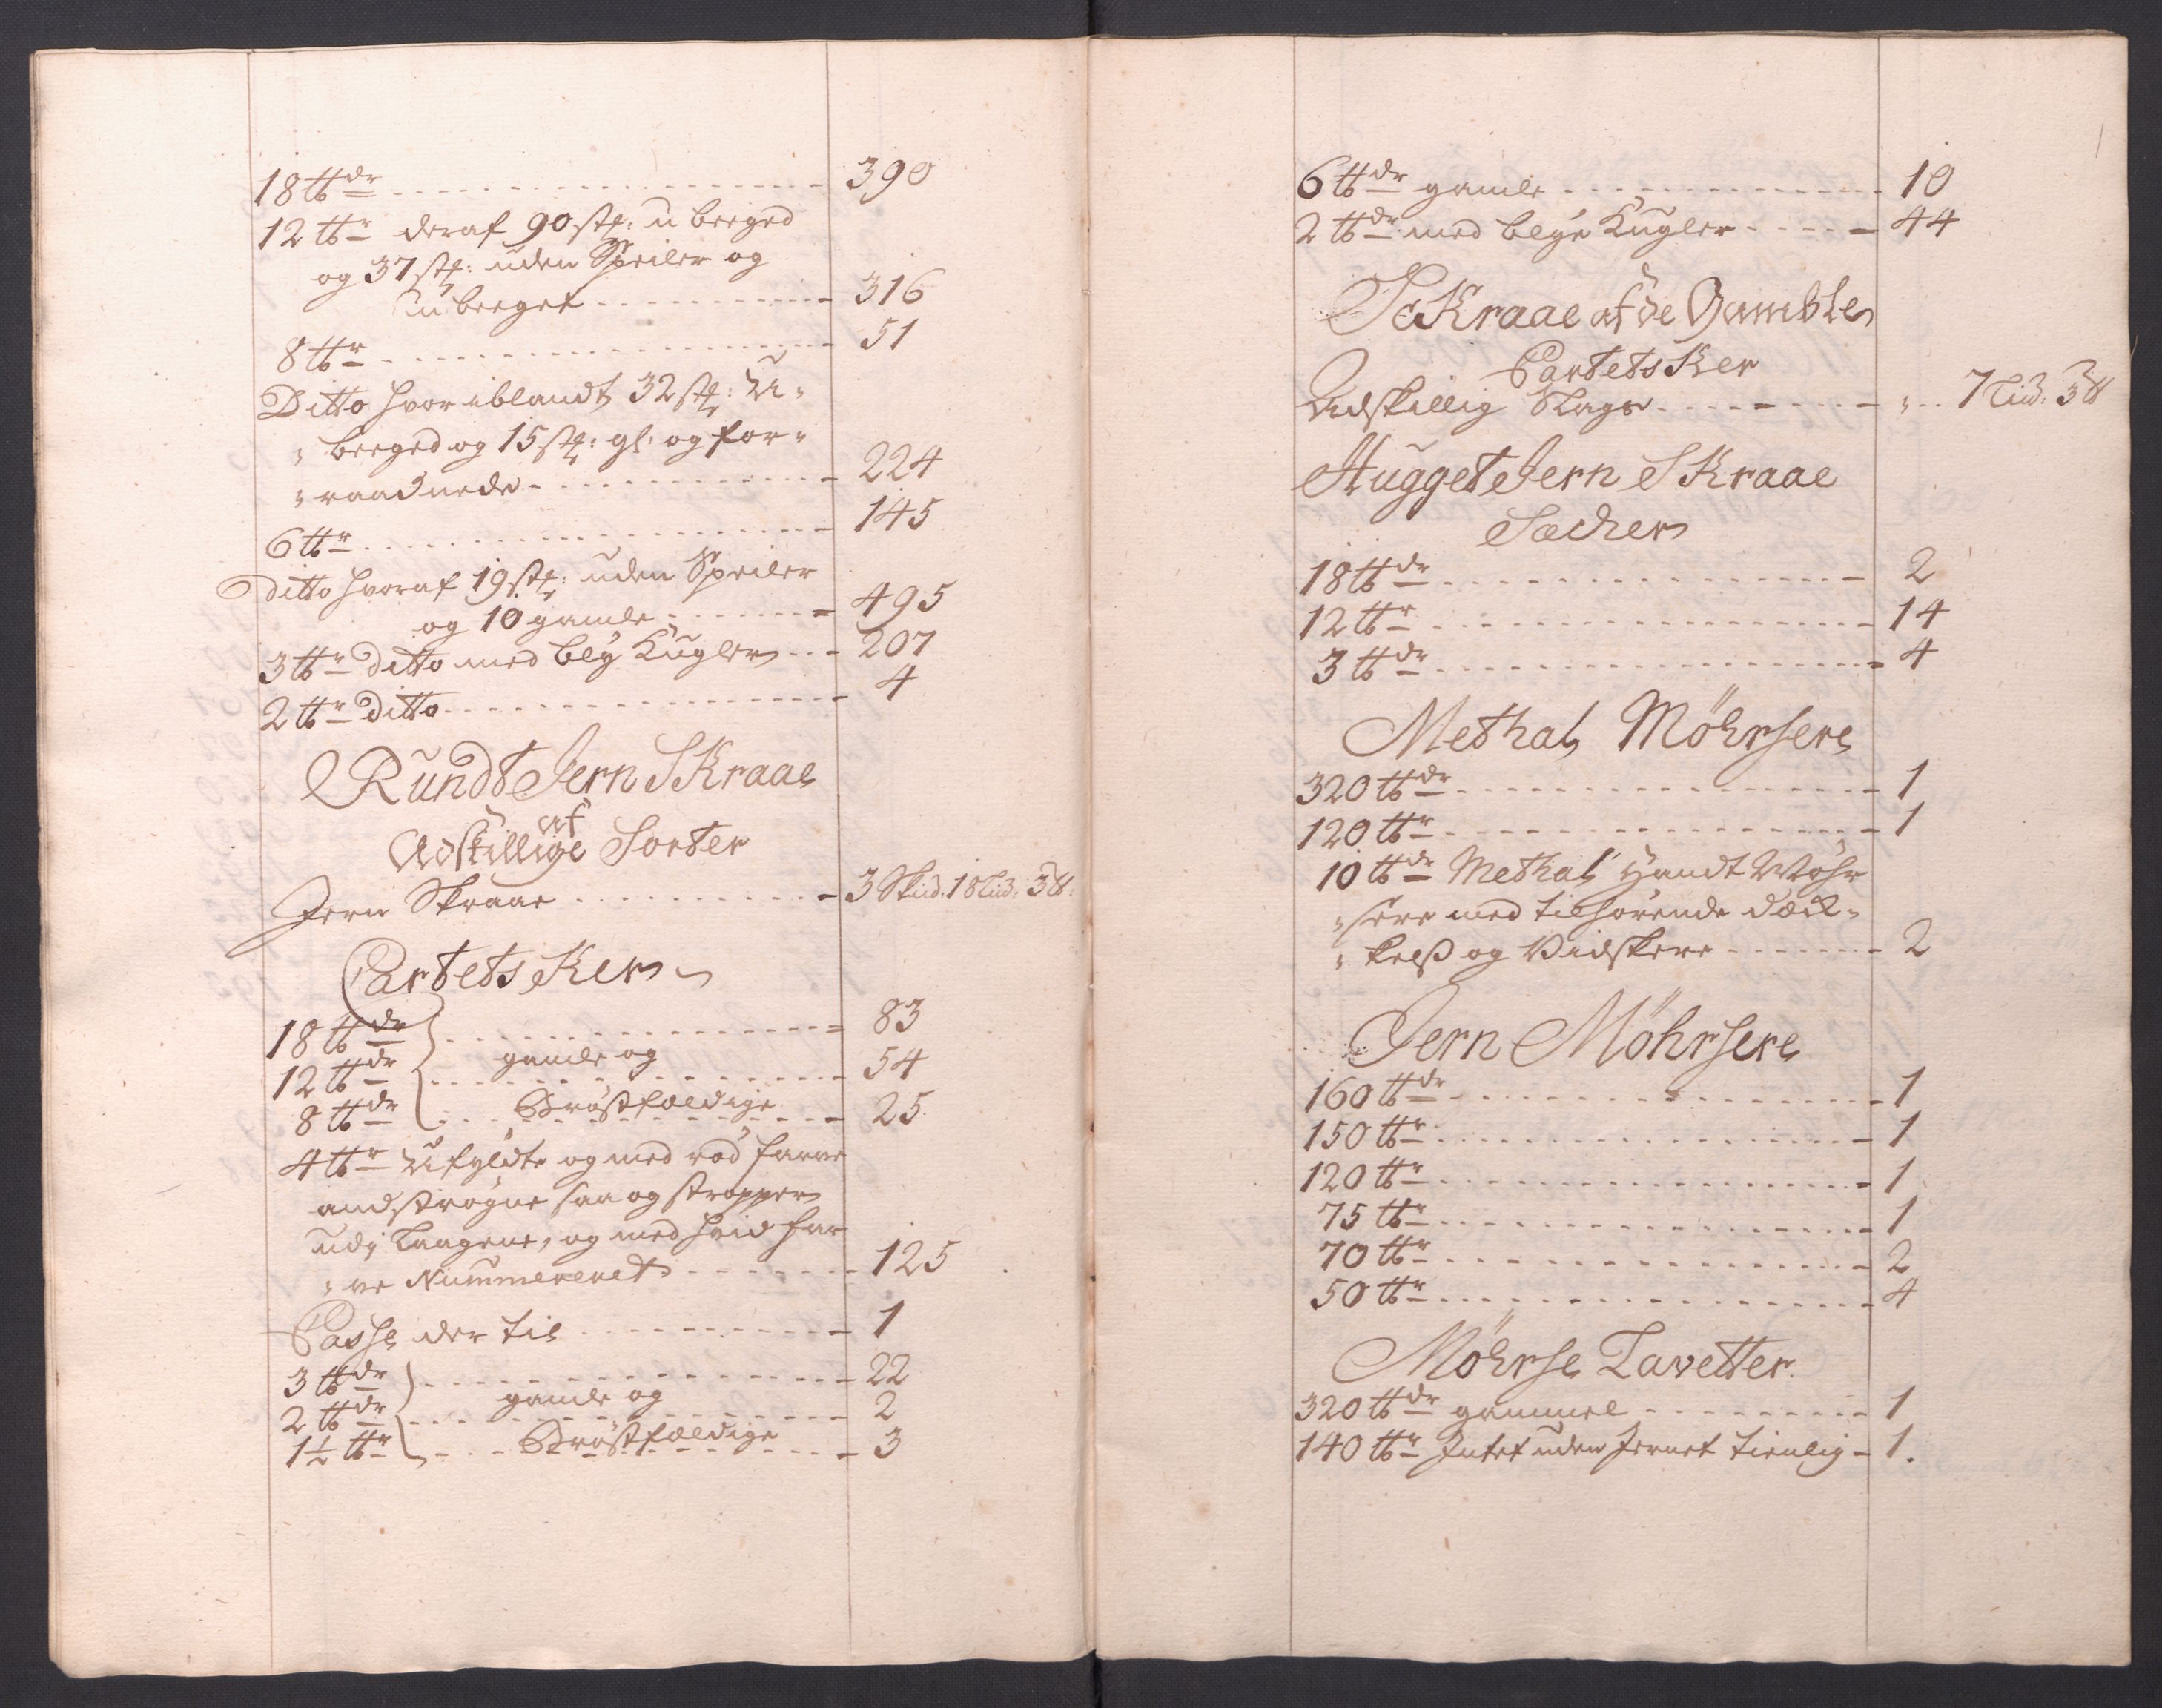 18 ℔dr - - - 390
12 ℔r deraf 90 stk: u beeged
og 37 stk: uden Speiler og
u beeget - - - 316
8 ℔r - - - 51
Ditto hvor iblandt 32 stk: U-
beeged og 15 stk: gl: og for-
raadnede - - - 224
6 ℔r - - - 145
Ditto hvoraf 19 stk: uden Speiler
og 10 gamle - - - 495
3 ℔r Ditto med bly Kugler - - 207
2 ℔r Ditto - - - 4
Rundt Jern SKraae
af
Adskillige Sorter
Jern Skraae - - - 3 Skid. 18 Lid: 3 ℔
CartetsKer
18 ℔dr - - - 83
12 ℔dr gamle og - - - 54
8 ℔dr Brøstfældige - - - 25
4 ℔r Ufyldte og med rød farve
andstrøgne saa og stropper
udj Laagene, og med hvid far
ve Nummereret - - - 125
Passe der til - - - 1
3 ℔dr - - - 22
2 ℔dr gamle og - - - 2
1½ ℔r Brøstfældige - - - 3
6 ℔dr gamle - - - 10
2 ℔dr med blye Kugler - - - 44
ScKraae af de Gamble
CartetsKer
Adskillig Slags - - - 7 Lid: 3 ℔
Hugget Jern SKraae
Sæcher
18 ℔dr - - - 2
12 ℔r - - - 14
3 ℔dr - - - 4
Methal Möhrsere
320 ℔dr - - - 1
120 ℔r - - - 1
10 ℔dr Methal Handt Möhr
sere med tilhørende dæck-
kelß og Vidskere - - - 2
Jern Möhrsere
160 ℔dr - - - 1
150 ℔r - - - 1
120 ℔r - - - 1
75 ℔r - - - 1
70 ℔r - - - 2
50 ℔r - - - 4
Möhrse Lavetter.
320 ℔dr gammel - - - 1
140 ℔r Intet uden Jernet tienlig - 1.